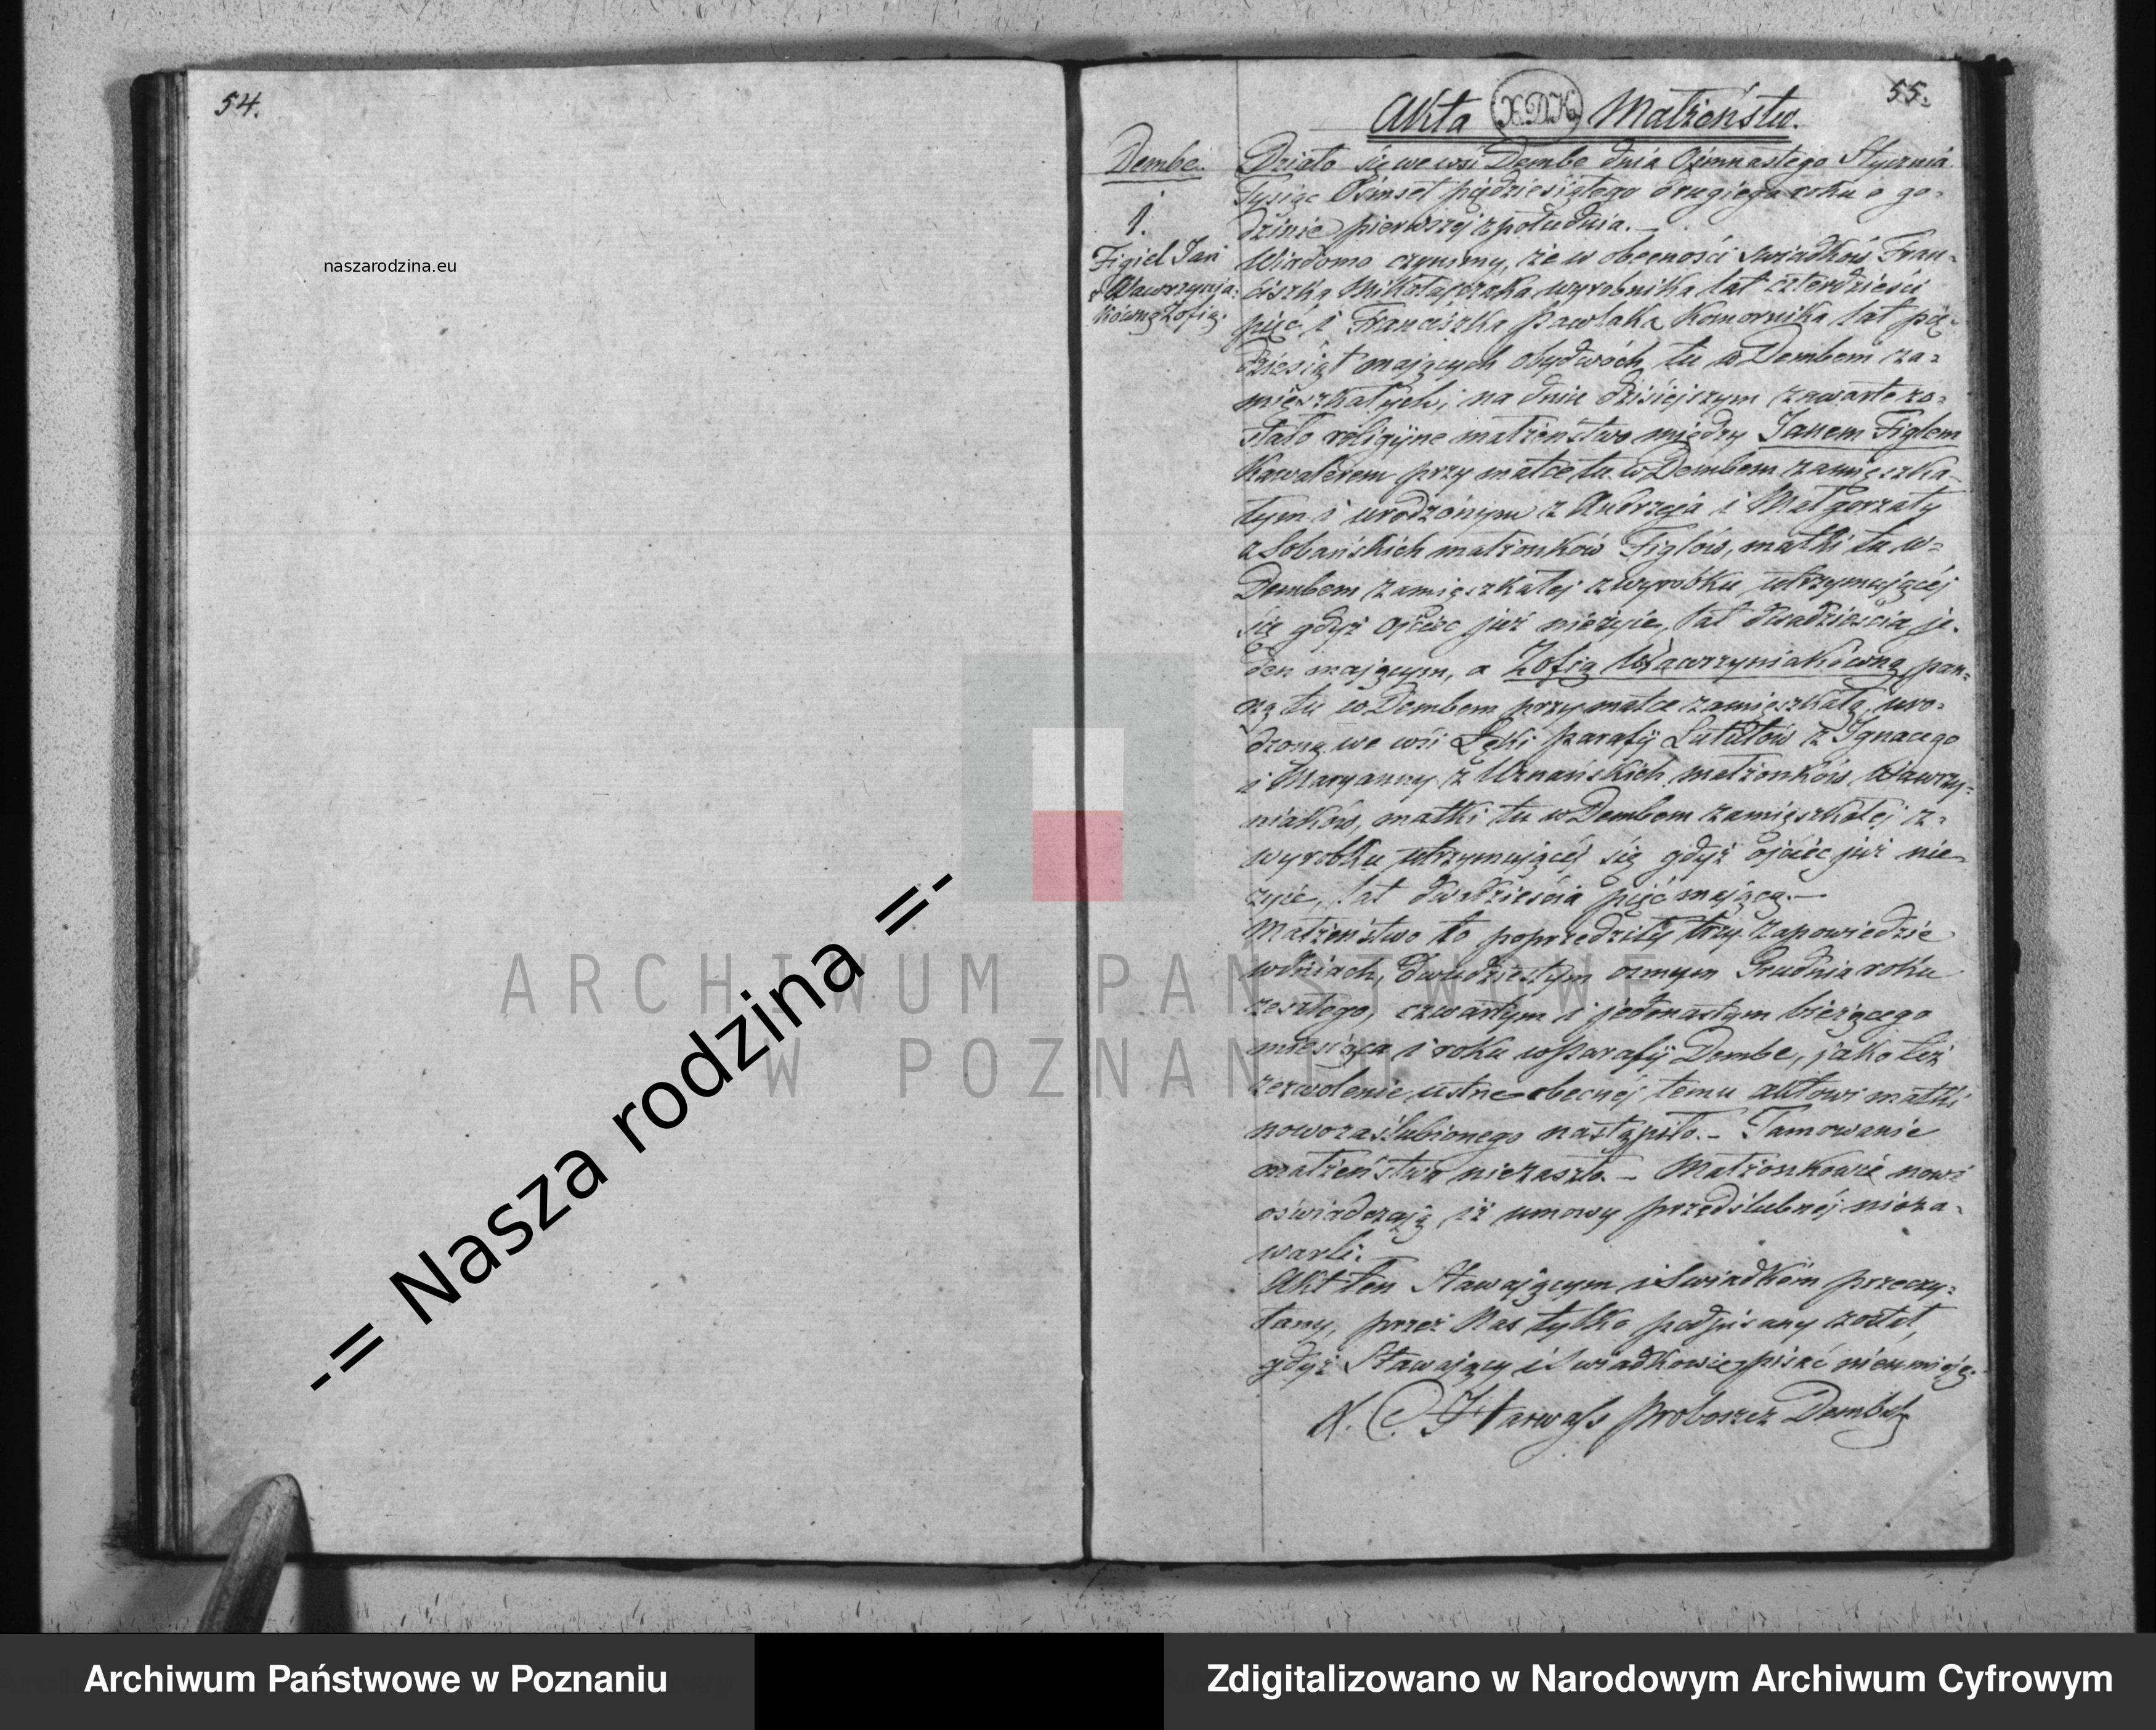 54.
naszarodzina.eu
-= Nasza rodzina =-
ARCHIWUM PAŃSTWOWE
W POZNANIU
55.
Akta X.D.K. Małżeństw.
Dembe.
1.
Figiel Jan
z Wawrzynia-
kówną Zofią.
Działo się we wsi Dembe dnia Ośmnastego Stycznia
Tysiąc Ośmset piędziesiątego drugiego roku o go-
dzinie pierwszej z południa.
Wiadomo czynimy, że w obecności świadków Fran-
ciszka Mikołajczaka wyrobnika lat czterdzieści
pięć i Franciszka Pawlaka Komornika lat pię-
dziesiąt mających obydwóch tu w Dembem za-
mięszkałych, na dniu dzisiejszym zawarte zo-
stało religijne małżeństwo między Janem Figlem
Kawalerem przy matce tu w Dembem zamięszka-
łym i urodzonym z Andrzeja i Małgorzaty
z Sobańskich małżonków Figlów, matki tu w-
Dembem zamięszkałej z wyrobku utrzymującéj
się gdyż ojciec już nieżyie, lat dwadzieścia je-
den mającym, a Zofią Wawrzyniakówną pan-
ną tu w Dembem przy matce zamięszkałą, uro-
dzoną we wsi Łęki Parafij Lututów z Ignacego
i Maryanny z Uznańskich małżonków Wawrzy-
niaków, matki tu w Dembem zamięszkałej z-
wyrobku utrzymującéj się gdyż ojciec już nie-
żyie, lat dwadzieścia pięć mającą.
Małżeństwo to poprzedziły trzy zapowiedzie
w dniach, dwudziestym osmym Grudnia roku
zeszłego, czwartym i jedenastym bieżącego
miesiąca i roku w Parafij Dembe, jako też
zezwolenie ustne obecnéj temu aktowi matki
nowozaślubionego nastąpiło. - Tamowanie
małżeństwa niezaszło. - Małżonkowie nowi
oświadczają iż umowy przedślubnéj nieza-
warli.
Akt ten Stawającym i Świadkom przeczy-
tany, przez Nas tylko podpisany został,
gdyż Stawający i Świadkowie pisać nieumieją.
X. Proboszcz Dembsk
Archiwum Państwowe w Poznaniu
Zdigitalizowano w Narodowym Archiwum Cyfrowym